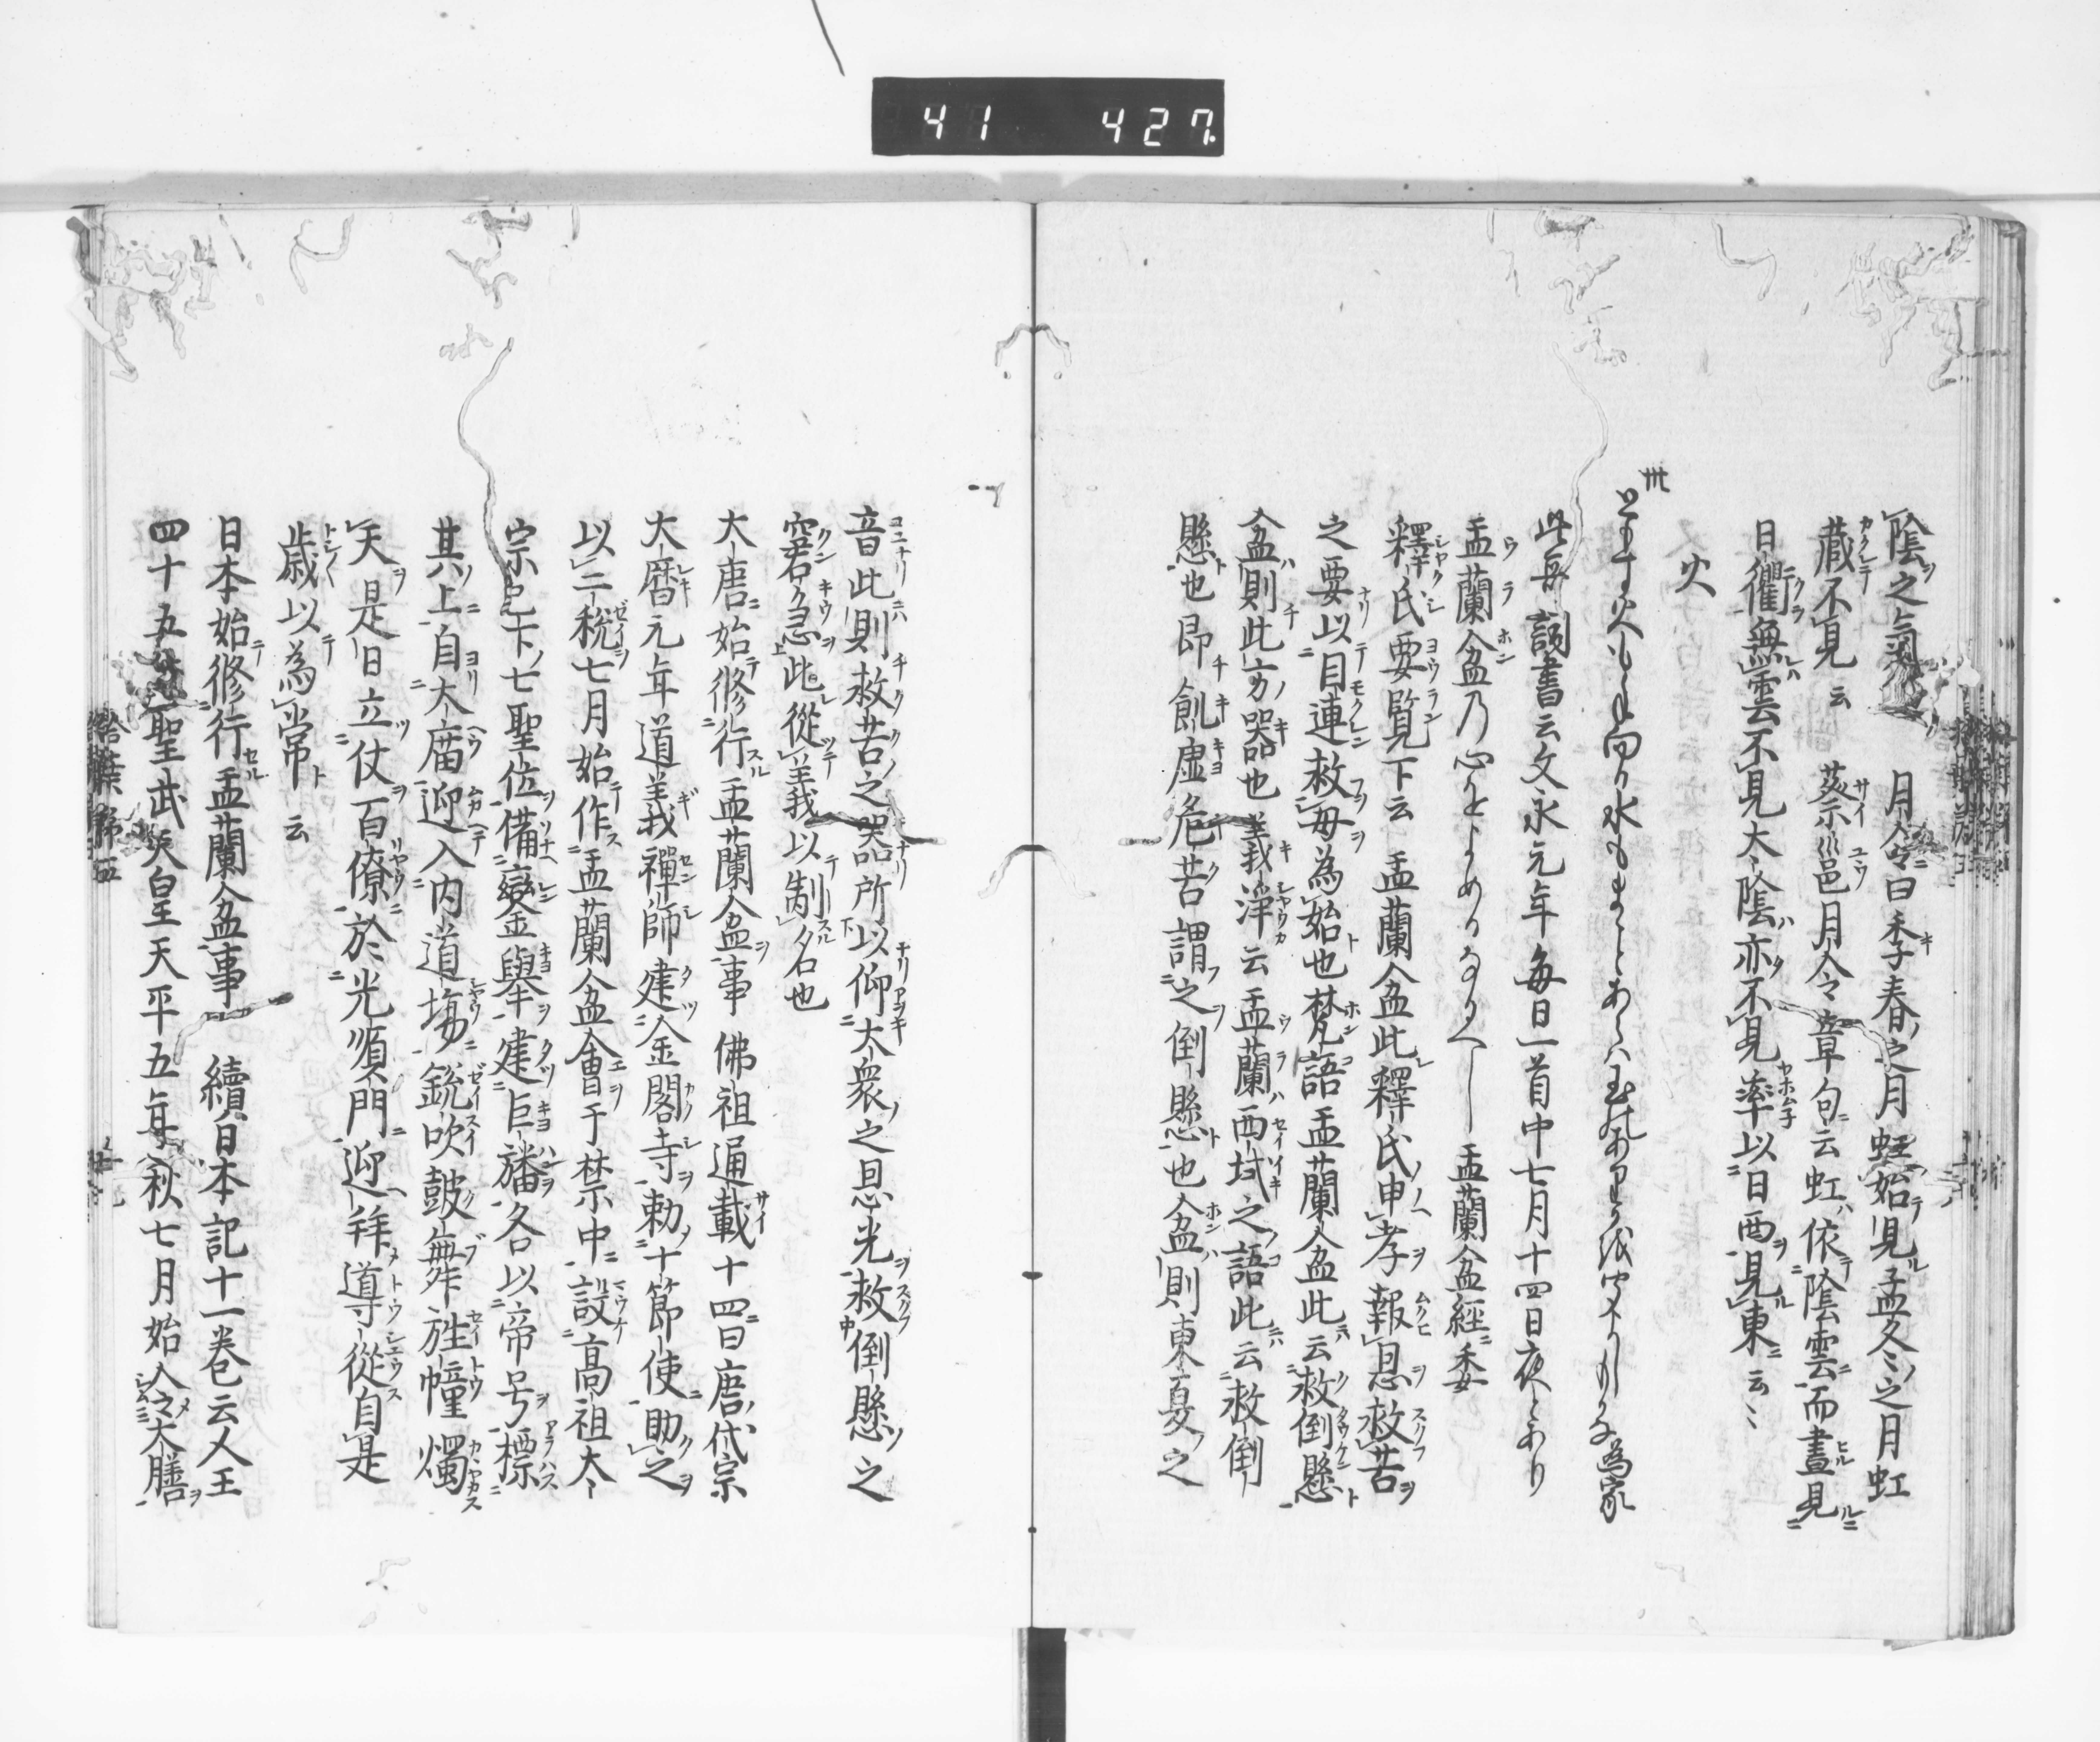 41 427
陰之氣 月令曰季春之月虹始見孟冬之月虹
藏不見云 蔡邕月令章句云虹依陰雲而晝見
日衝無雲不見大陰亦不見率以日西見東云〻
火
卅
為家
此每詞書云文永元年毎日一首中七月十四日夜とあり
盂蘭盆乃心をよめるなるへし 盂蘭盆経委
釋氏要覧下云 盂蘭盆此釋氏申孝報恩救苦
之要以目連救母為始也梵語盂蘭盆此云救倒懸
盆則此方器也 義淨云盂蘭西域之語此云救倒
懸也即飢虚危苦謂之倒懸也盆則東夏之
音此則救苦之器所以仰大衆之恩光救倒懸之
窘急此從義以制名也
大唐始修行盂蘭盆事 佛祖通載十四曰唐代宗
大暦元年道義禪師建金閣寺勅十節使助之
以二税七月始作盂蘭盆會于禁中設高祖太
宗已下七聖位備鑾輿建巨旛各以帝号標
其上自太庿迎入内道場銃吹鼓舞旌幢燭
天是日立仗百僚於光順門迎拜導從自是
歳以為常云
日本始修行盂蘭盆事 續日本記十一巻云人王
四十五代聖武天皇天平五年秋七月始令大膳